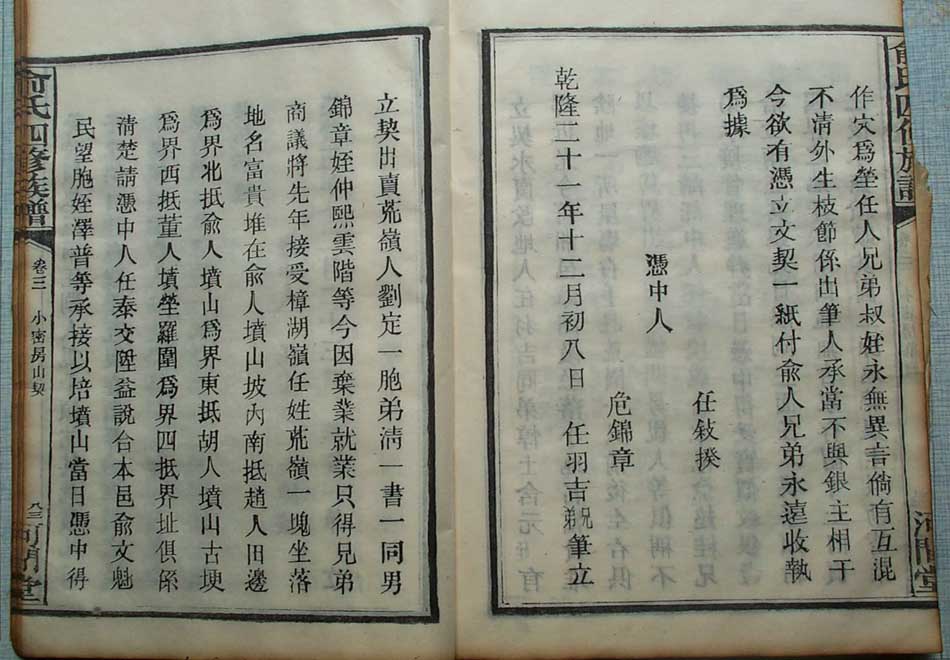 俞氏四修族譜
河間堂
作穴爲塋任人兄弟叔姪永無異言倘有互混
不清外生枝節係出筆人承當不與銀主相干
今欲有憑立文契一紙付俞人兄弟永遠收執
爲據
任敍揆
憑中人
危錦章
乾隆二十一年十二月初八日任羽吉兄弟筆立
立契出賣荒嶺人劉定一胞弟淸一書一同男
錦章姪仲熙雲階等今因棄業就業只得兄弟
商議將先年接受樟湖嶺任姓荒嶺一塊坐落
地名富貴堆在俞人墳山坡內南抵趙人田邊
爲界北抵俞人墳山爲界東抵胡人墳山古埂
爲界西抵董人墳塋羅圍爲界四抵界址俱係
清楚請憑中人任泰交陞益說合本邑俞文魁
民望胞姪澤普等承接以培墳山當日憑中得
俞氏四修族譜
卷三
小密房山契
八三
河間堂